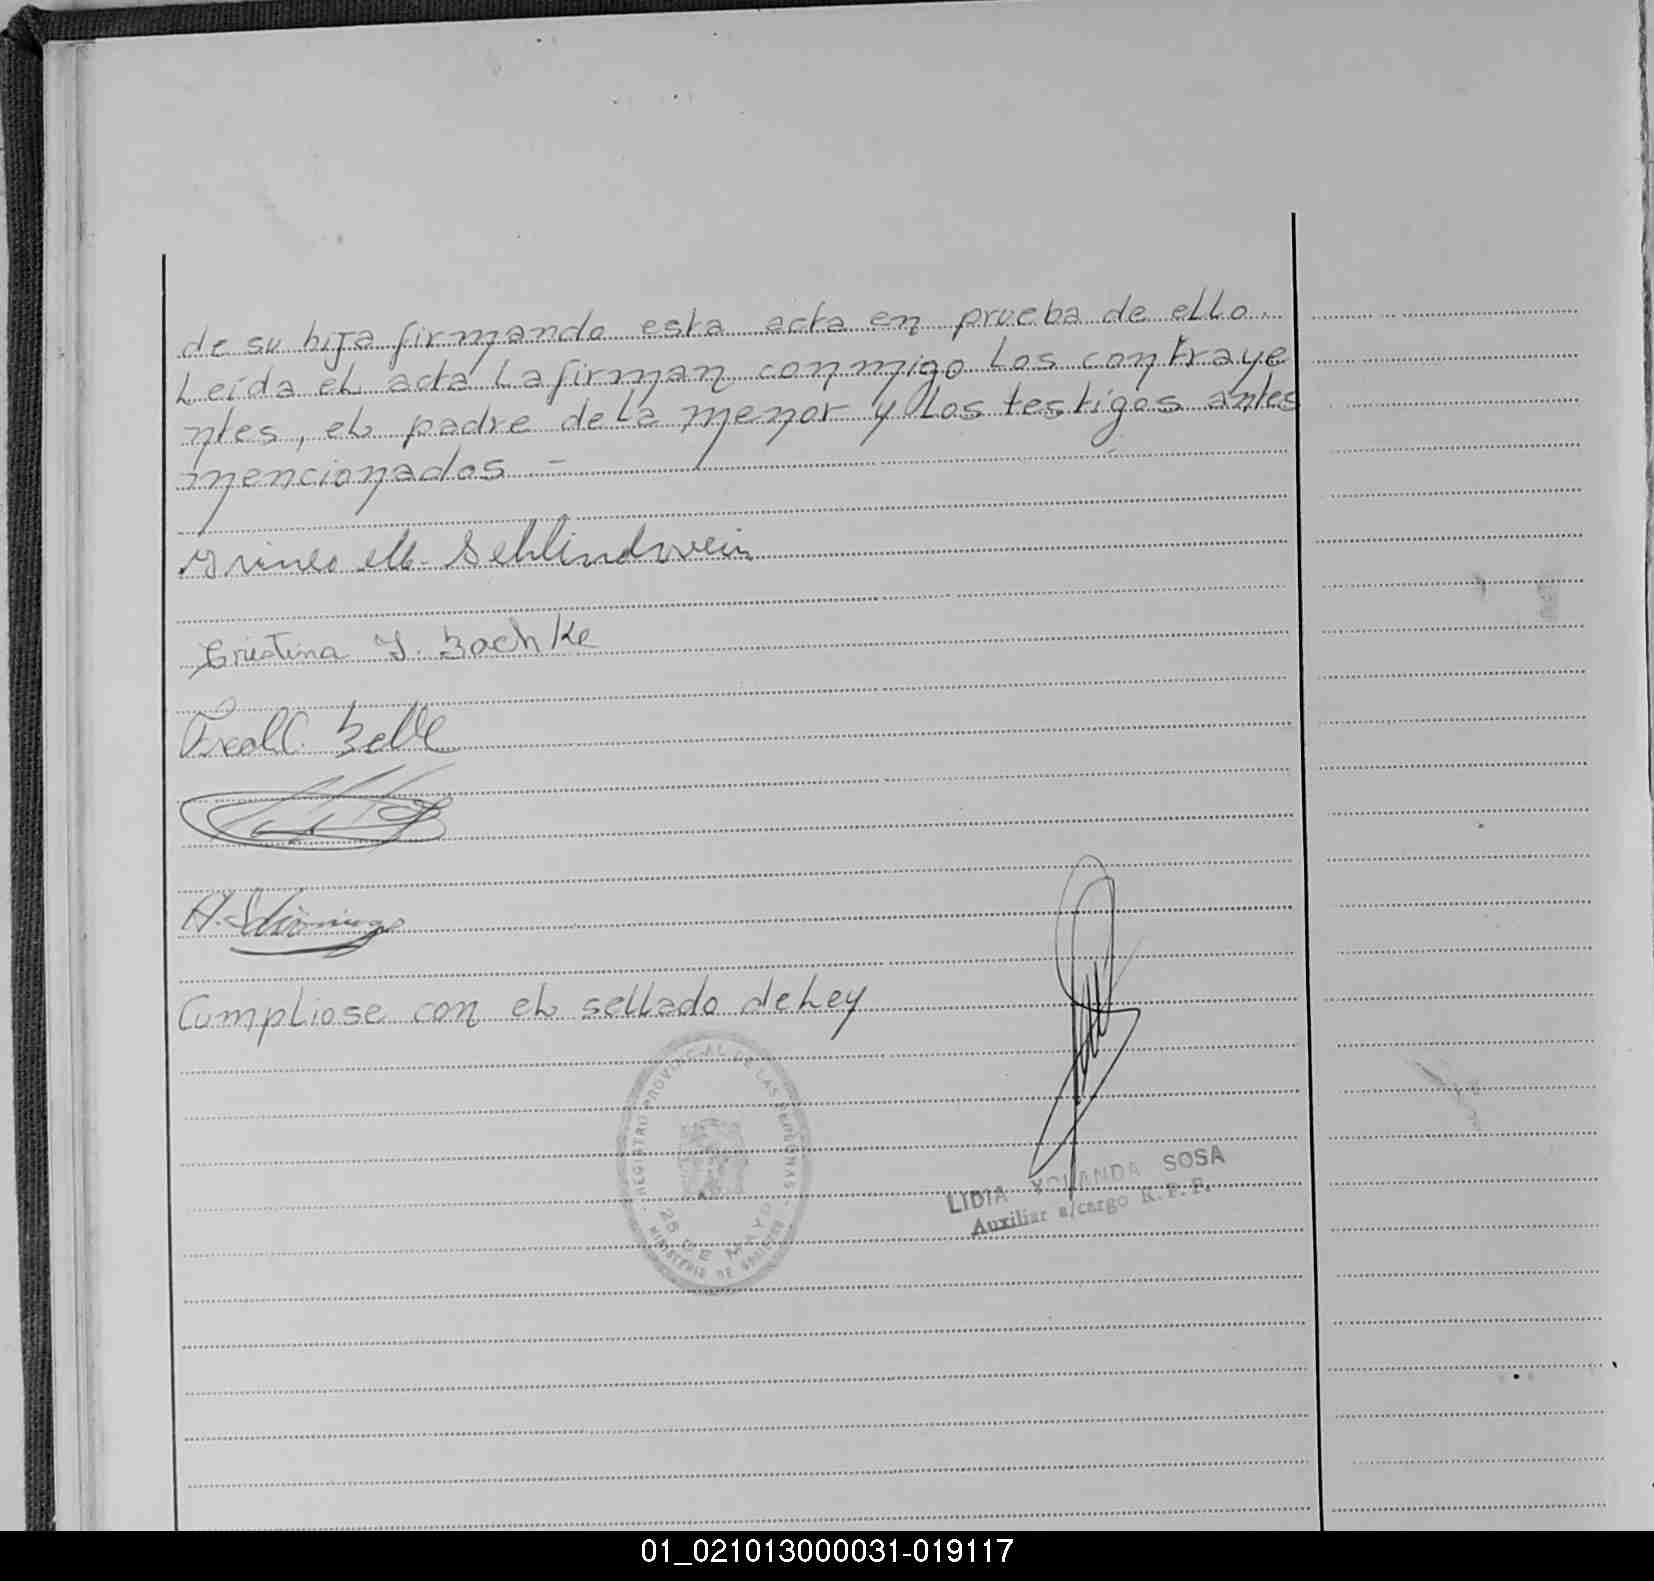 de su hija firmando esta acta en prueba de ello.
Leída el acta la firman conmigo los contraye
ntes, el padre de la menor y los testigos antes
mencionados -
M. Schlindwein
Cristina Y. Zachke
H.
Cumpliose con el sellado de Ley
REGISTRO PROVINCIAL DE LAS PERSONAS
25 DE MAYO
MINISTERIO DE
LIDIA YOLANDA SOSA
Auxiliar a/cargo R.P.P.
01_021013000031-019117